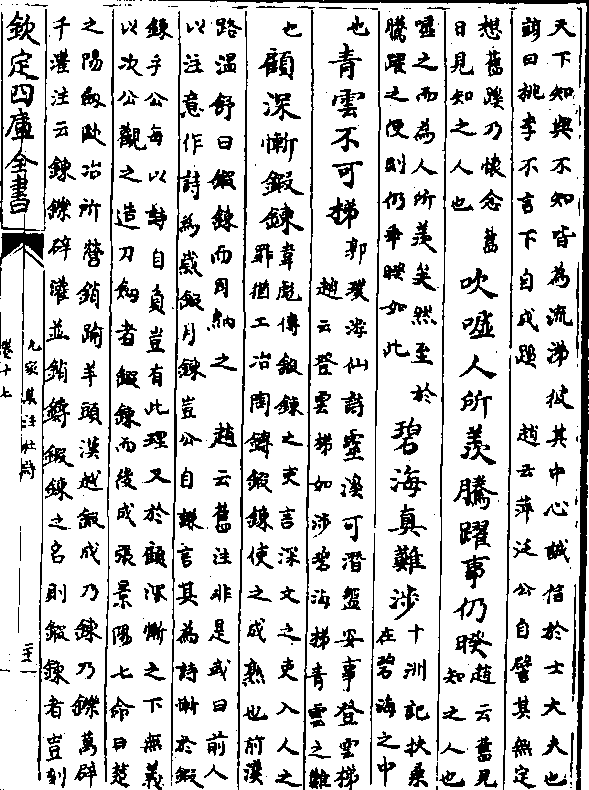 天下知與不知皆為流涕彼其中心誠信於士大夫也
諺曰桃李不言下自成蹊 趙云萍泛公自譬其無定
想舊蹊乃懷念舊
日見知之人也
吹噓人所羨騰躍事仍睽
趙云舊見
知之人也
噓之而為人所羨矣然至於
騰躍之便則仍乖睽如此
碧海真難涉
十洲記扶桑
在碧海之中
也
青雲不可梯
郭璞游仙詩靈溪可潛盤安事登雲梯
趙云登雲梯如涉碧海梯青雲之難
也
顧深慚鍛鍊
韋彪傳鍛鍊之吏言深文之吏入人之
罪猶工冶陶鑄鍛鍊使之成熟也前漢
路溫舒曰鍛鍊而周納之 趙云舊注非是或曰前人
以注意作詩為歲鍛月鍊豈公自謙言其為詩慚於鍛
鍊乎公每以詩自負豈有此理又於顧深慚之下無義
以次公觀之造刀劒者鍛鍊而後成張景陽七命曰楚
之陽劒歐冶所營銷踰羊頭漢越鍛成乃鍊乃鑠萬辟
千灌注云鍊鑠辟灌並銷鑄鍛鍊之名則鍛鍊者豈刻
欽定四庫全書
九家集注杜詩
卷十七
二十一